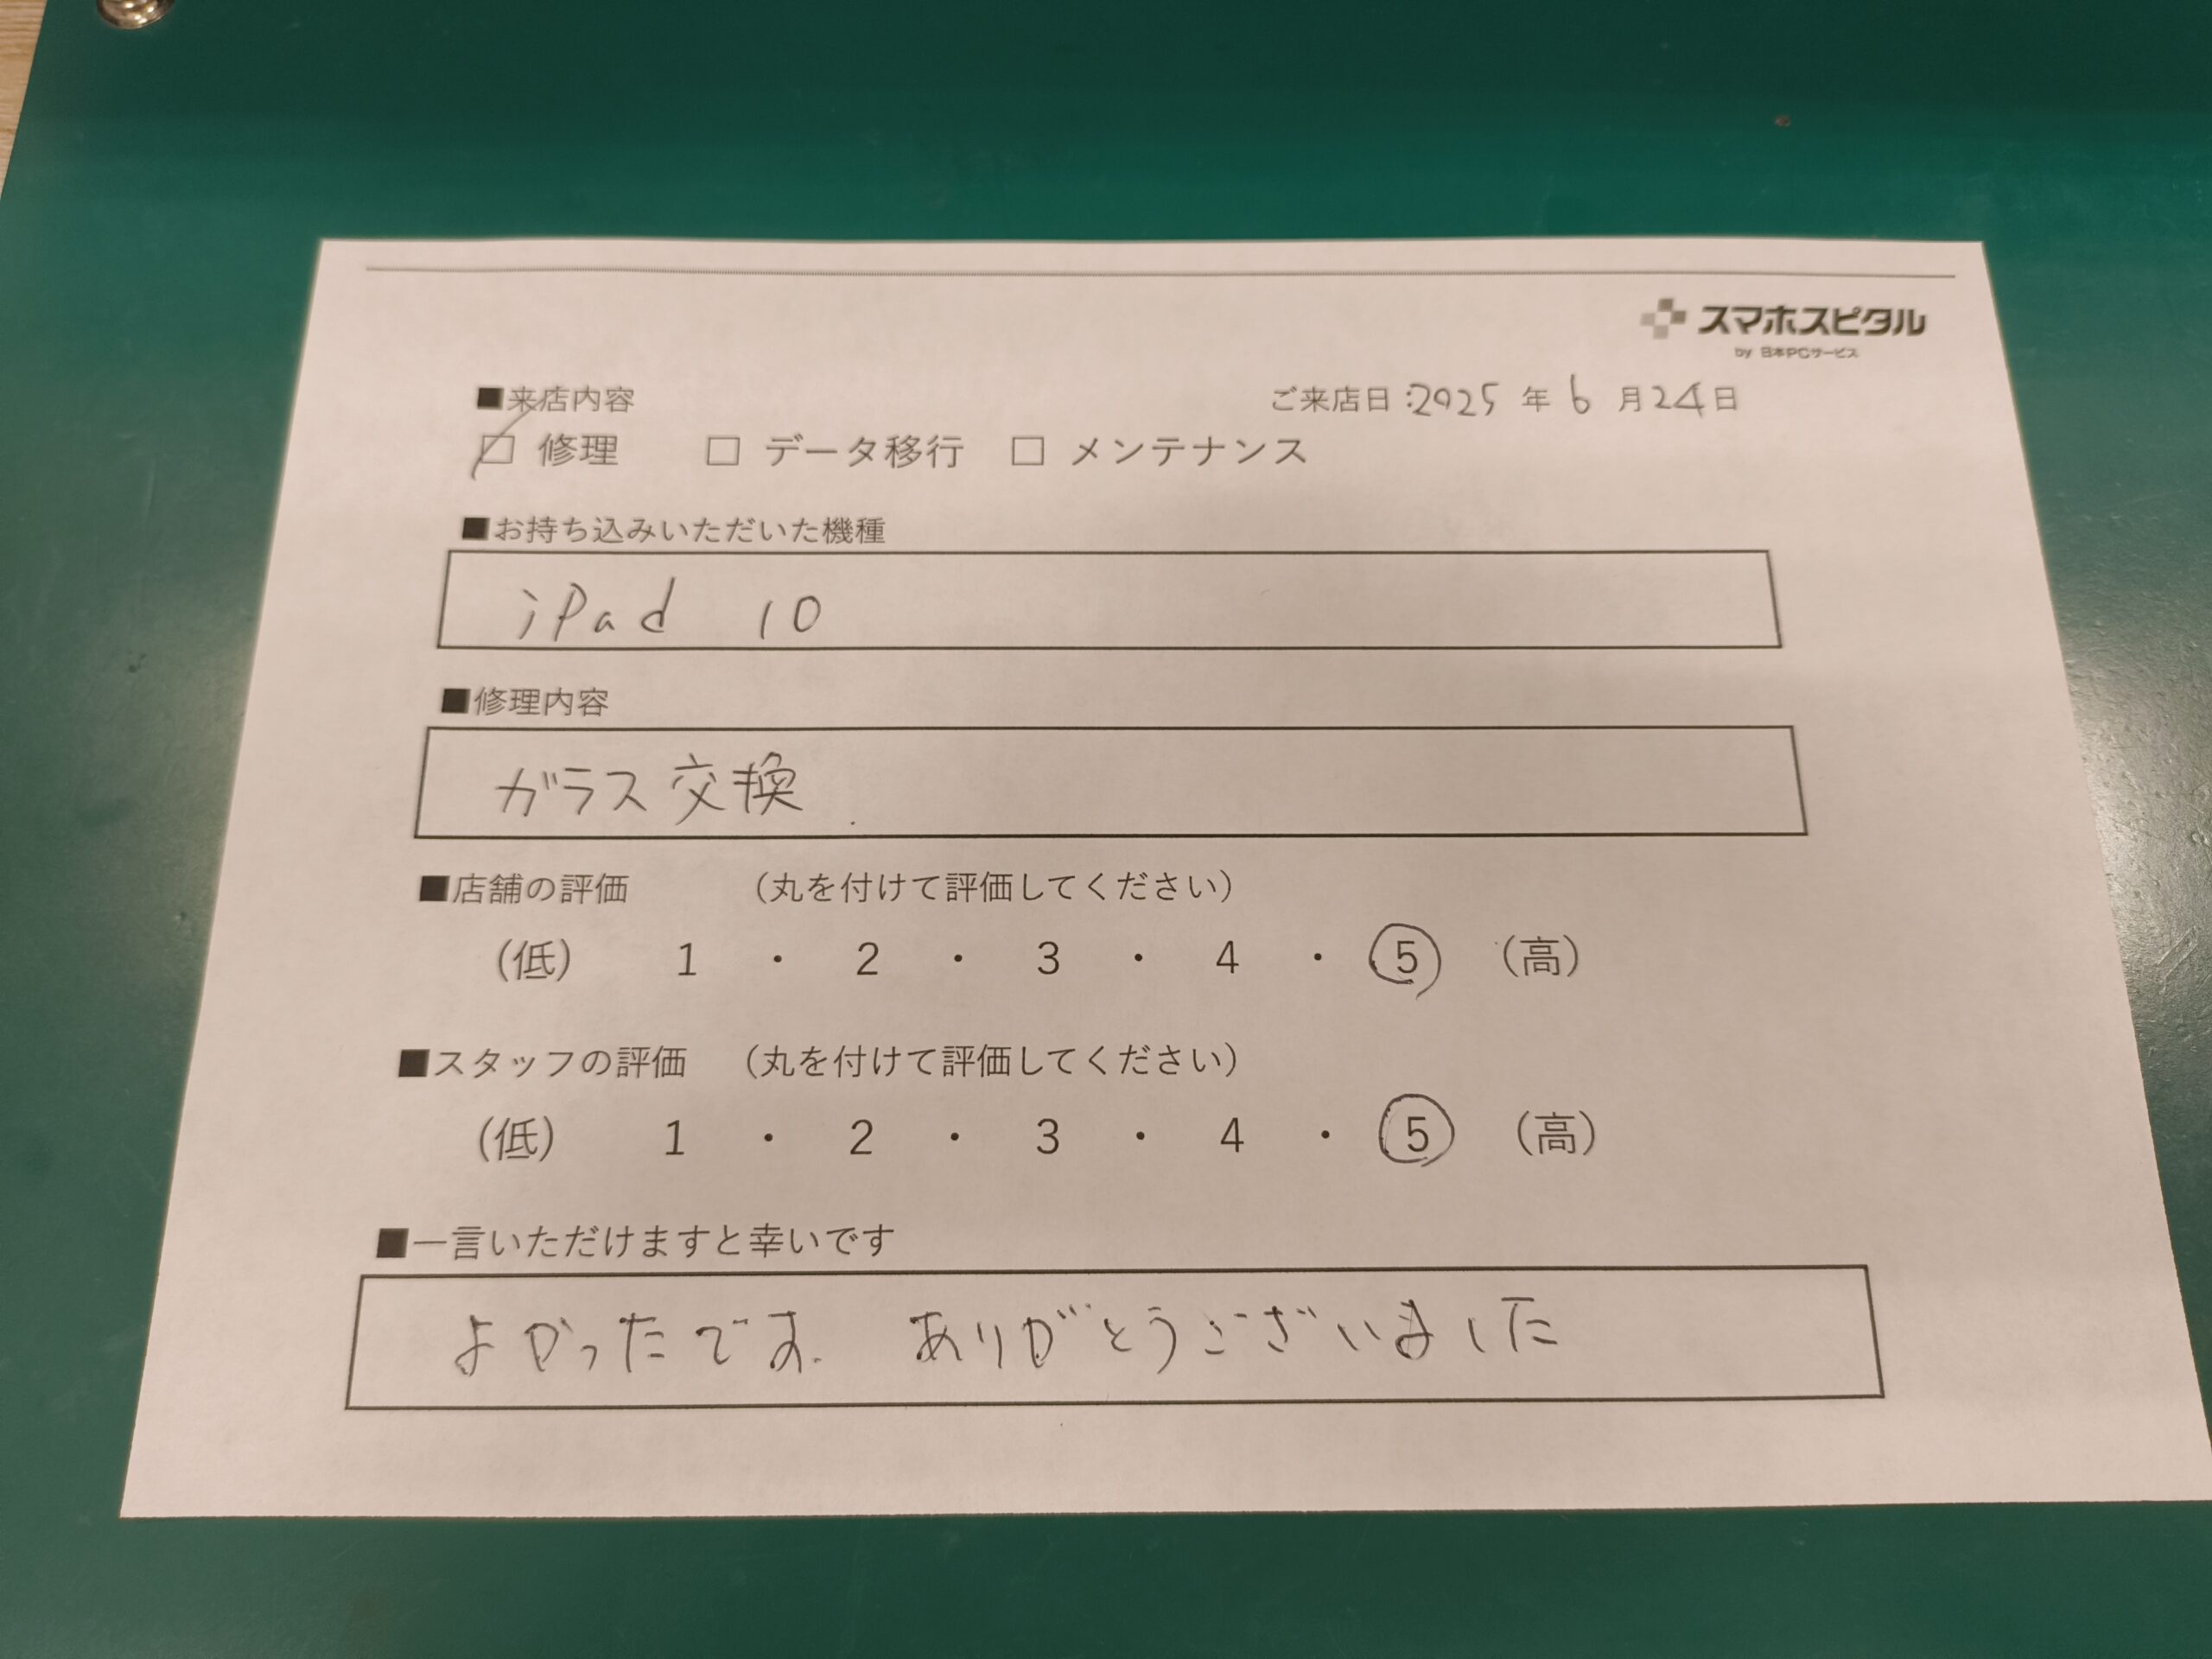 スマホスピタル
by 日本PCサービス
■来店内容 ご来店日:2025年6月24日
☑ 修理 □ データ移行 □ メンテナンス
■お持ち込みいただいた機種
iPad 10
■修理内容
ガラス交換
■店舗の評価 （丸を付けて評価してください）
（低） 1 ・ 2 ・ 3 ・ 4 ・ 5 （高）
■スタッフの評価 （丸を付けて評価してください）
（低） 1 ・ 2 ・ 3 ・ 4 ・ 5 （高）
■一言いただけますと幸いです
よかったです. ありがとうございました